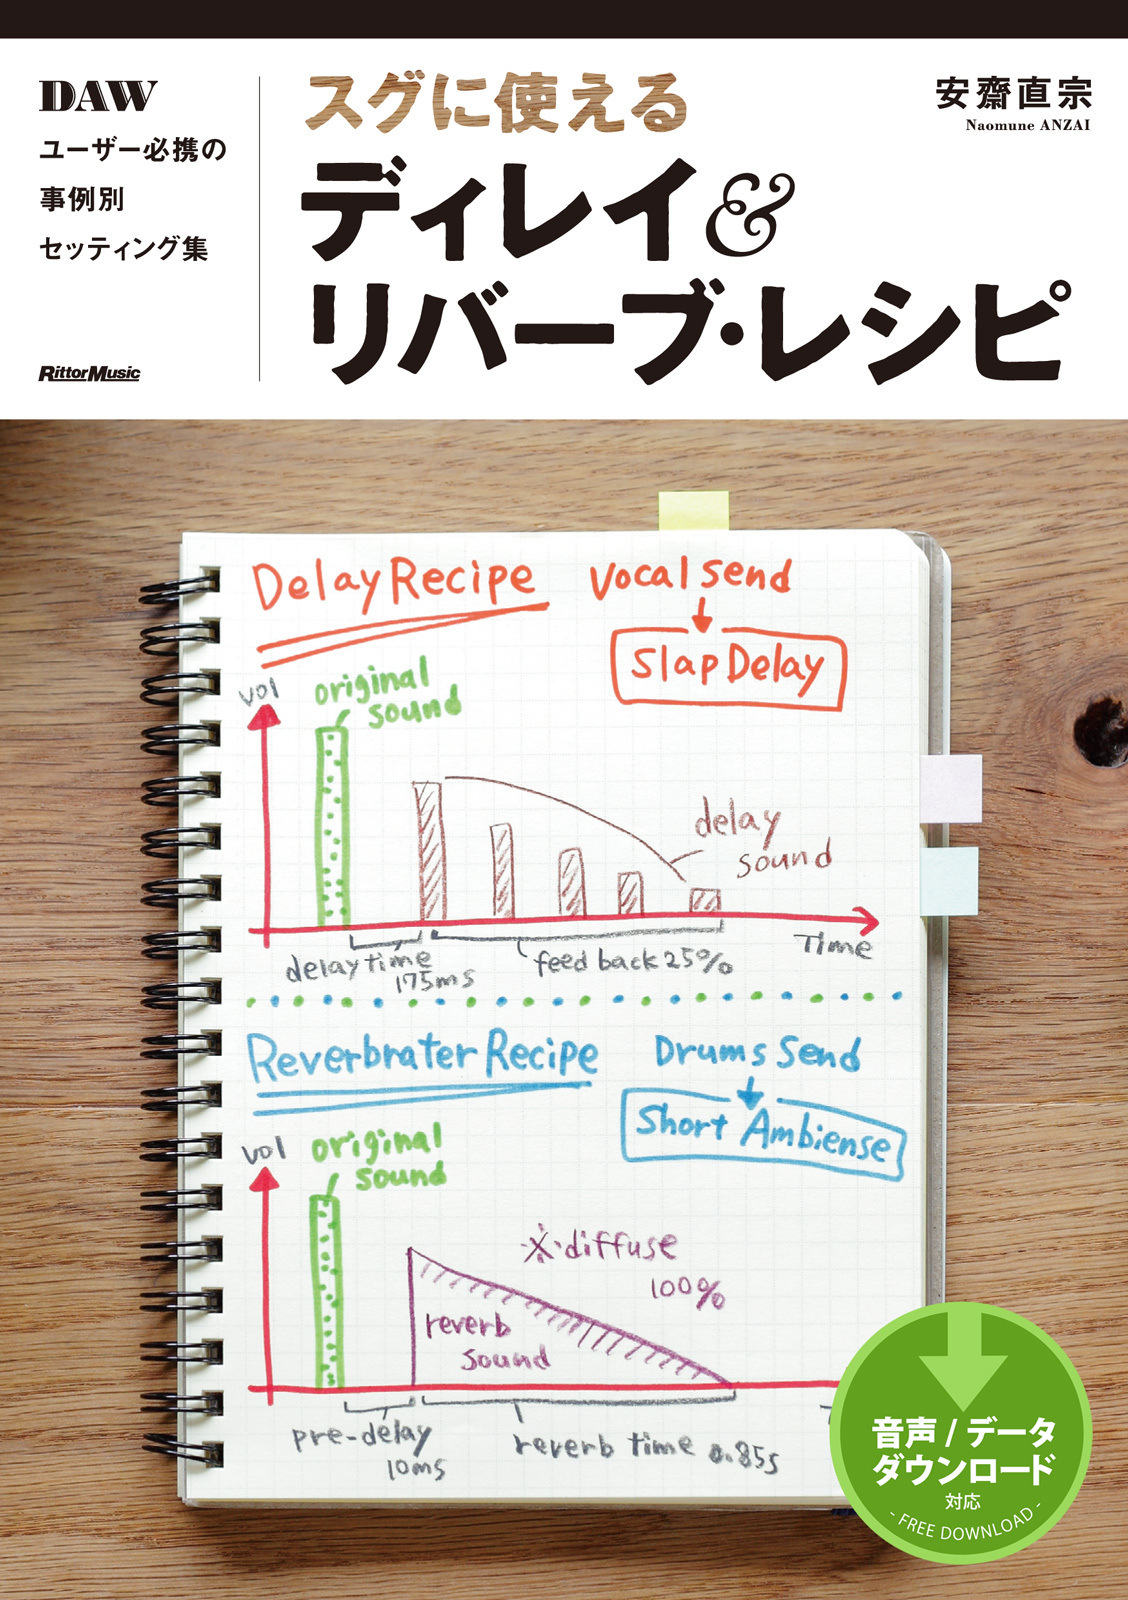 DAW
ユーザー必携の
事例別
セッティング集
RittorMusic
スグに使える
ディレイ&
リバーブ・レシピ
安齋直宗
Naomune ANZAI
Delay Recipe
Vocal Send
Slap Delay
vol
original
sound
delay
sound
Time
delay time
175ms
feed back 25%
Reverbrater Recipe
Drums Send
Short Ambiense
vol
original
sound
※diffuse
100%
reverb
sound
pre-delay
10ms
reverb time 0.85s
音声/データ
ダウンロード
対応
- FREE DOWNLOAD -